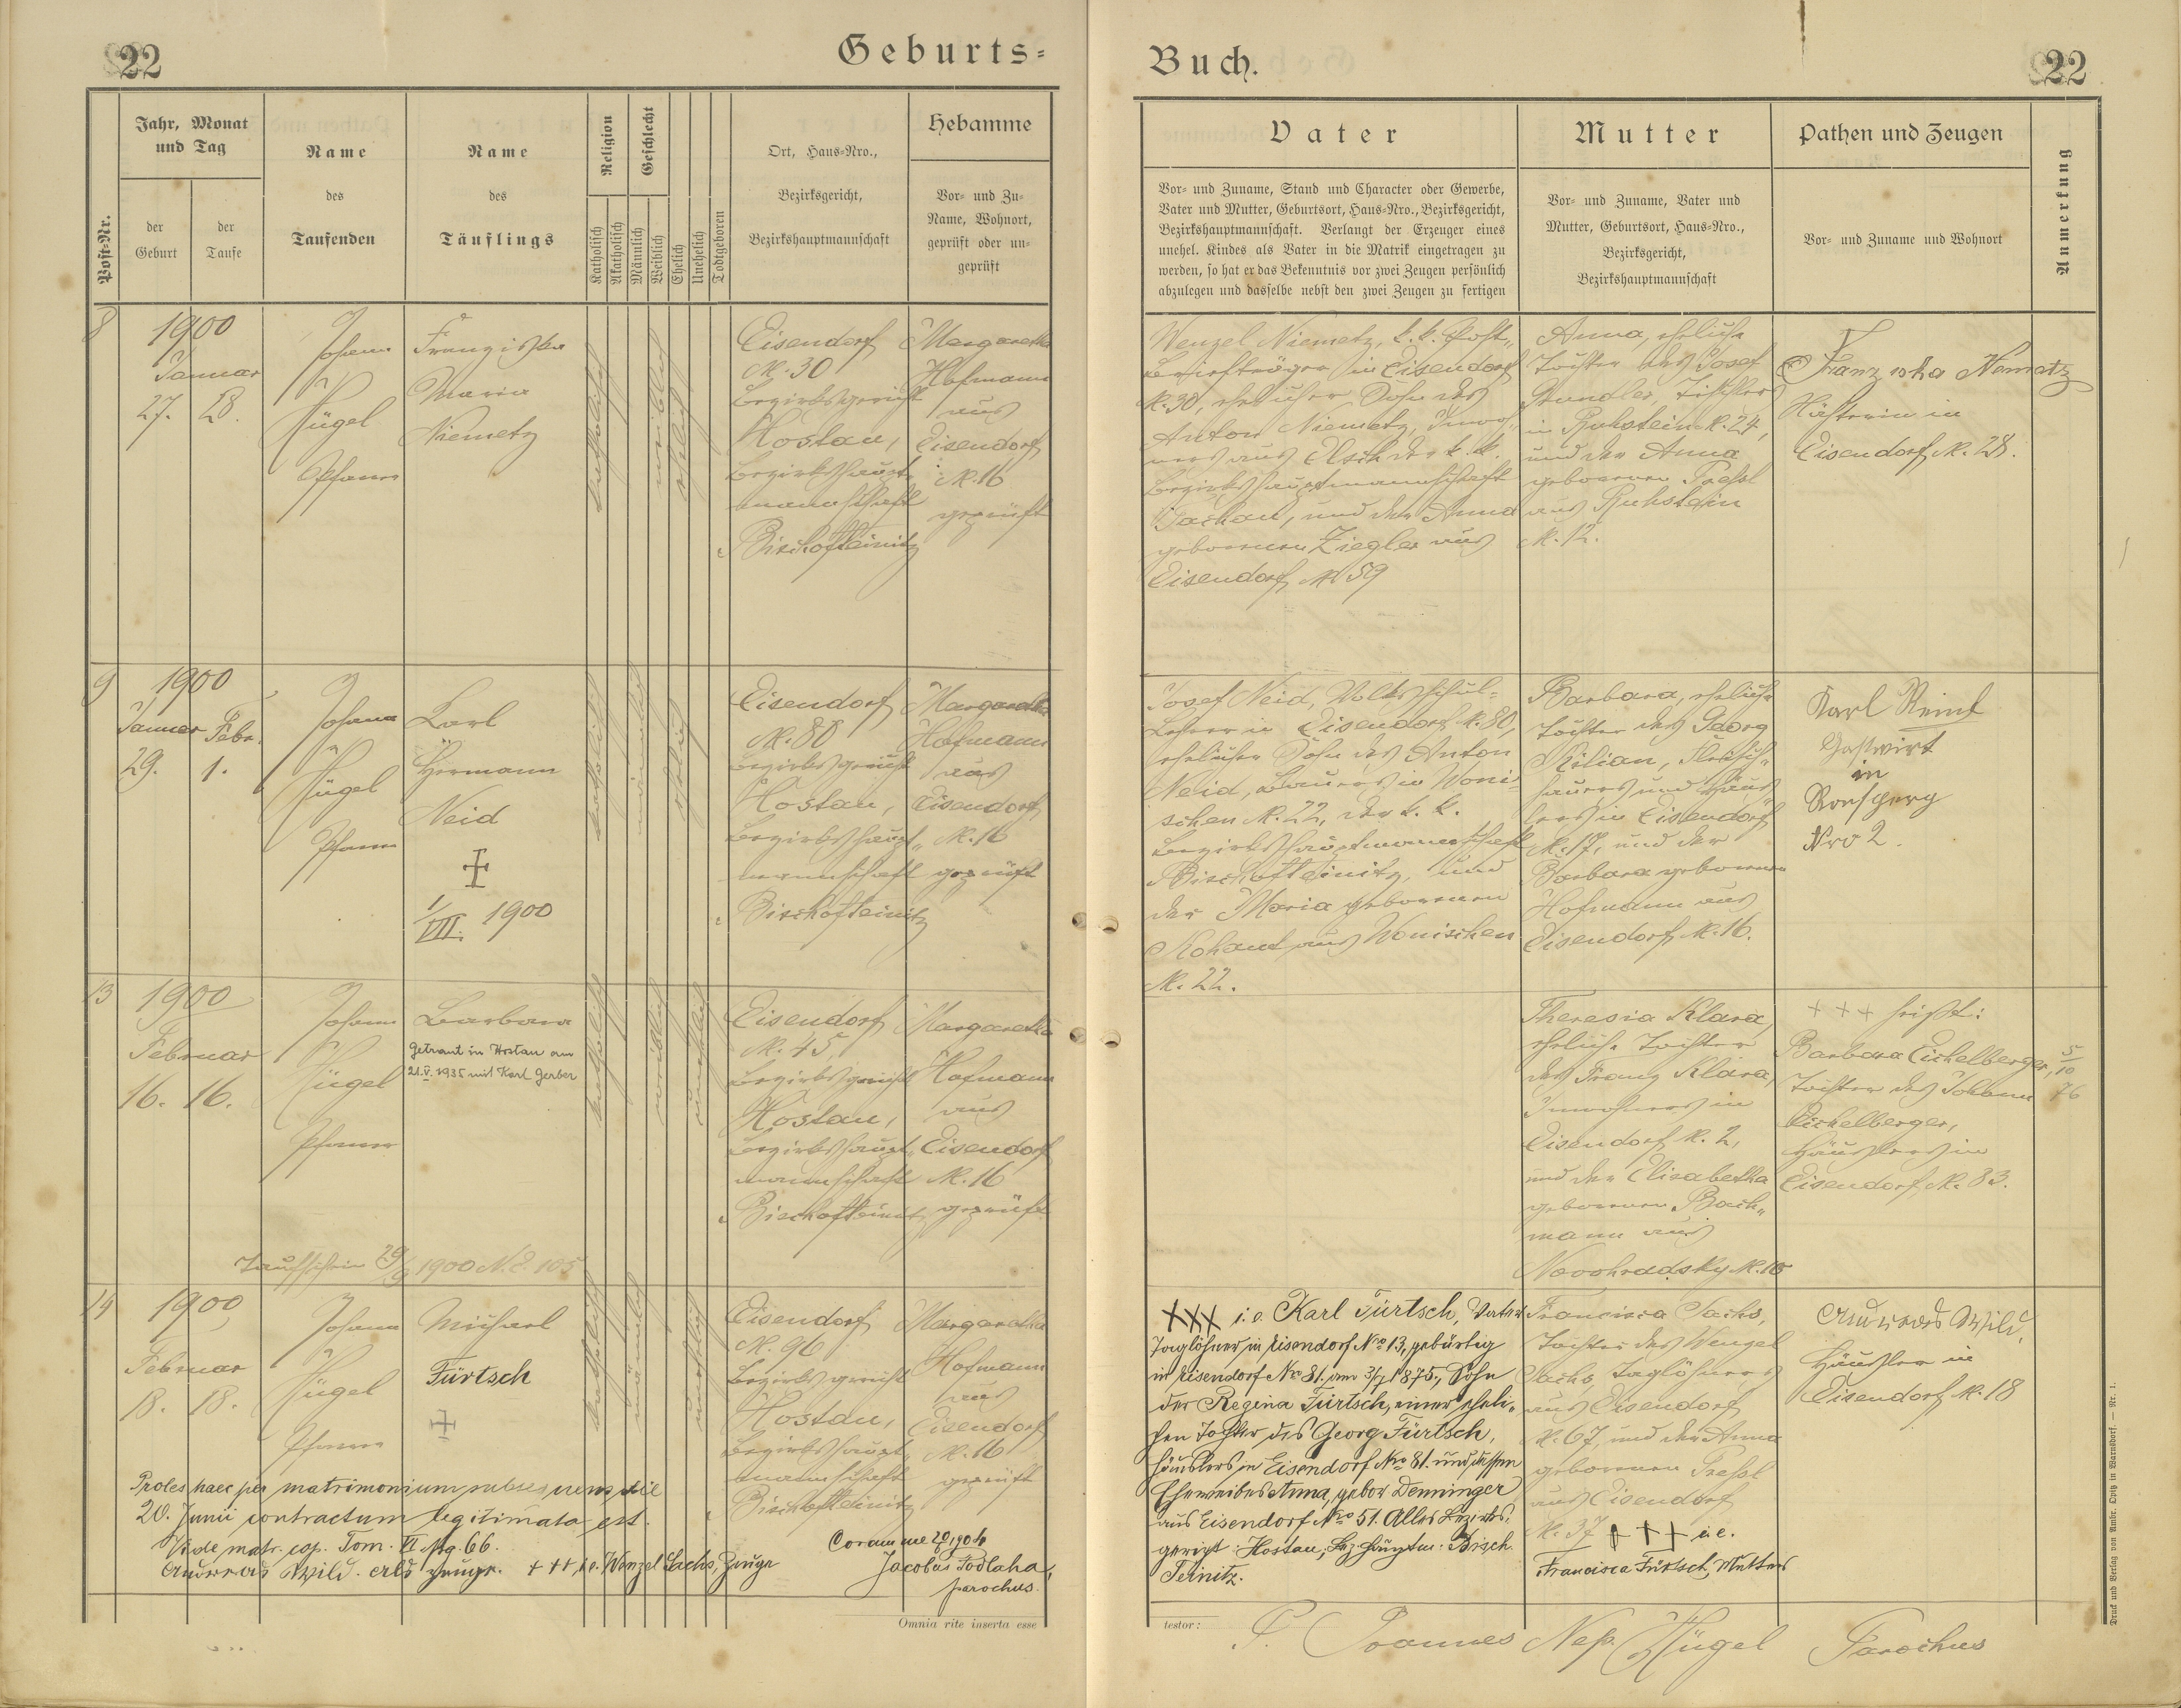 22
Geburts=
Buch.
22
Post=Nr.
Jahr, Monat
und Tag
der
Geburt
der
Taufe
Name
des
Taufenden
Name
des
Täuflings
Religion
Katholisch
Akatholisch
Geschlecht
Männlich
Weiblich
Ehelich
Unehelich
Todtgeboren
Ort, Haus=Nro.,
Bezirksgericht,
Bezirkshauptmannschaft
Hebamme
Vor= und Zu=
Name, Wohnort,
geprüft oder un=
geprüft
Vater
Vor= und Zuname, Stand und Character oder Gewerbe,
Vater und Mutter, Geburtsort, Haus=Nro., Bezirksgericht,
Bezirkshauptmannschaft. Verlangt der Erzeuger eines
unehel. Kindes als Vater in die Matrik eingetragen zu
werden, so hat er das Bekenntnis vor zwei Zeugen persönlich
abzulegen und dasselbe nebst den zwei Zeugen zu fertigen
Mutter
Vor= und Zuname, Vater und
Mutter, Geburtsort, Haus=Nro.,
Bezirksgericht,
Bezirkshauptmannschaft
Pathen und Zeugen
Vor= und Zuname und Wohnort
Anmerkung
8
1900
Januar
27. 28.
Johann
Hügel
Pfarrer
Franziska
Maria
Niemetz
katholisch
weiblich
ehelich
Eisendorf
N. 30
Bezirksgericht
Hostau,
Bezirkshaupt=
mannschaft
Bischofteinitz
Margaretha
Hofmann
aus
Eisendorf
N. 16
geprüft
Wenzel Niemetz, k. k. Post=
Briefträger in Eisendorf
N. 30, ehelicher Sohn des
Anton Niemetz, Inwoh=
ners aus Elsch der k. k.
Bezirkshauptmannschaft
Tachau, und der Anna
geborenen Ziegler aus
Eisendorf N 59
Anna, eheliche
Tochter des Josef
in Ruhstein N. 24,
und der Anna
geborenen Pressl
aus Ruhstein
N. 12.
Franziska Nemetz
in
Eisendorf N. 28.
9
1900
Januar Febr.
29. 1.
Johann
Hügel
Pfarrer
Karl
Hermann
Neid
1/VIII. 1900
katholisch
männlich
ehelich
Eisendorf
N. 80
Bezirksgericht
Hostau,
Bezirkshaupt=
mannschaft
Bischofteinitz
Margaretha
Hofmann
aus
Eisendorf
N. 16
geprüft
Josef Neid, Volksschul=
Lehrer in Eisendorf N. 80,
ehelicher Sohn des Anton
Neid, Bauers in Woni=
schen N. 22, der k. k.
Bezirkshauptmannschaft
Bischofteinitz, und
der Maria geborenen
Kohaut aus Wonischen
N. 22.
Barbara, eheliche
Tochter des Georg
Kilian, Fleisch=
hauers und Häus=
lers in Eisendorf
N. 17, und der
Barbara geborenen
Hofmann aus
Eisendorf N. 16.
Karl
Gastwirt
in
Ronsperg
Nro 2.
13
1900
Februar
16. 16.
Johann
Hügel
Pfarrer
Barbara
Getraut in Hostau am
21.V.1935 mit Karl Gerber
katholisch
weiblich
unehelich
Eisendorf
N. 45,
Bezirksgericht
Hostau,
Bezirkshaupt=
mannschaft
Bischofteinitz
Margaretha
Hofmann
aus
Eisendorf
N. 16
geprüft
Theresia Klara,
eheliche Tochter
des Franz Klara,
Inwohners in
Eisendorf N. 2,
und der Elisabetha
geborenen Bach=
mann aus
+++ heißt:
Barbara Eichelberger,
Tochter des Johann
Eichelberger,
Häuslers in
Eisendorf N. 83.
5/10
76
Taufschein 29/9 1900 N.E. 105
14
1900
Februar
18. 18.
Johann
Hügel
Pfarrer
Michael
Fürtsch
katholisch
männlich
unehelich
Eisendorf
N. 96
Bezirksgericht
Hostau,
Bezirkshaupt=
mannschaft
Bischofteinitz
Margaretha
Hofmann
aus
Eisendorf
N. 16
geprüft
XXX i. e. Karl Fürtsch, Vater
Taglöhner in Eisendorf Nro 13, gebürtig
in Eisendorf Nro 81. am 3/7 1875., Sohn
der Regina Fürtsch, einer eheli=
chen Tochter des Georg Fürtsch,
Häuslers in Eisendorf Nro 81. und dessen
Eheweibes Anna, gebor Denninger
aus Eisendorf Nro 51. Alles Bezirks=
gericht: Hostau, Bez.hauptm: Bisch.
Teinitz.
Francisca Sachs,
Tochter des Wenzel
Sachs, Taglöhners
aus Eisendorf
N. 67, und der Anna
geborenen Pressl
aus Eisendorf
N. 37 +++ i.e.
Francisca Fürtsch, Mutter
Andreas Wild,
Häusler in
Eisendorf N. 18
Proles haec per matrimonium subsequens die
20. Junii contractum legitimata est.
Vide matr. cop. Tom. VI. pag. 66.
Andreas Wild. als Zeuge. +++ i.e. Wenzel Sachs, Zeuge
Coram me
Jacobus Podlaha,
parochus.
Omnia rite inserta esse
testor:
P. Joannes Nep. Hügel Parochus
Druck und Verlag von Ambr. Opitz in Warnsdorf. — Nr. 1.